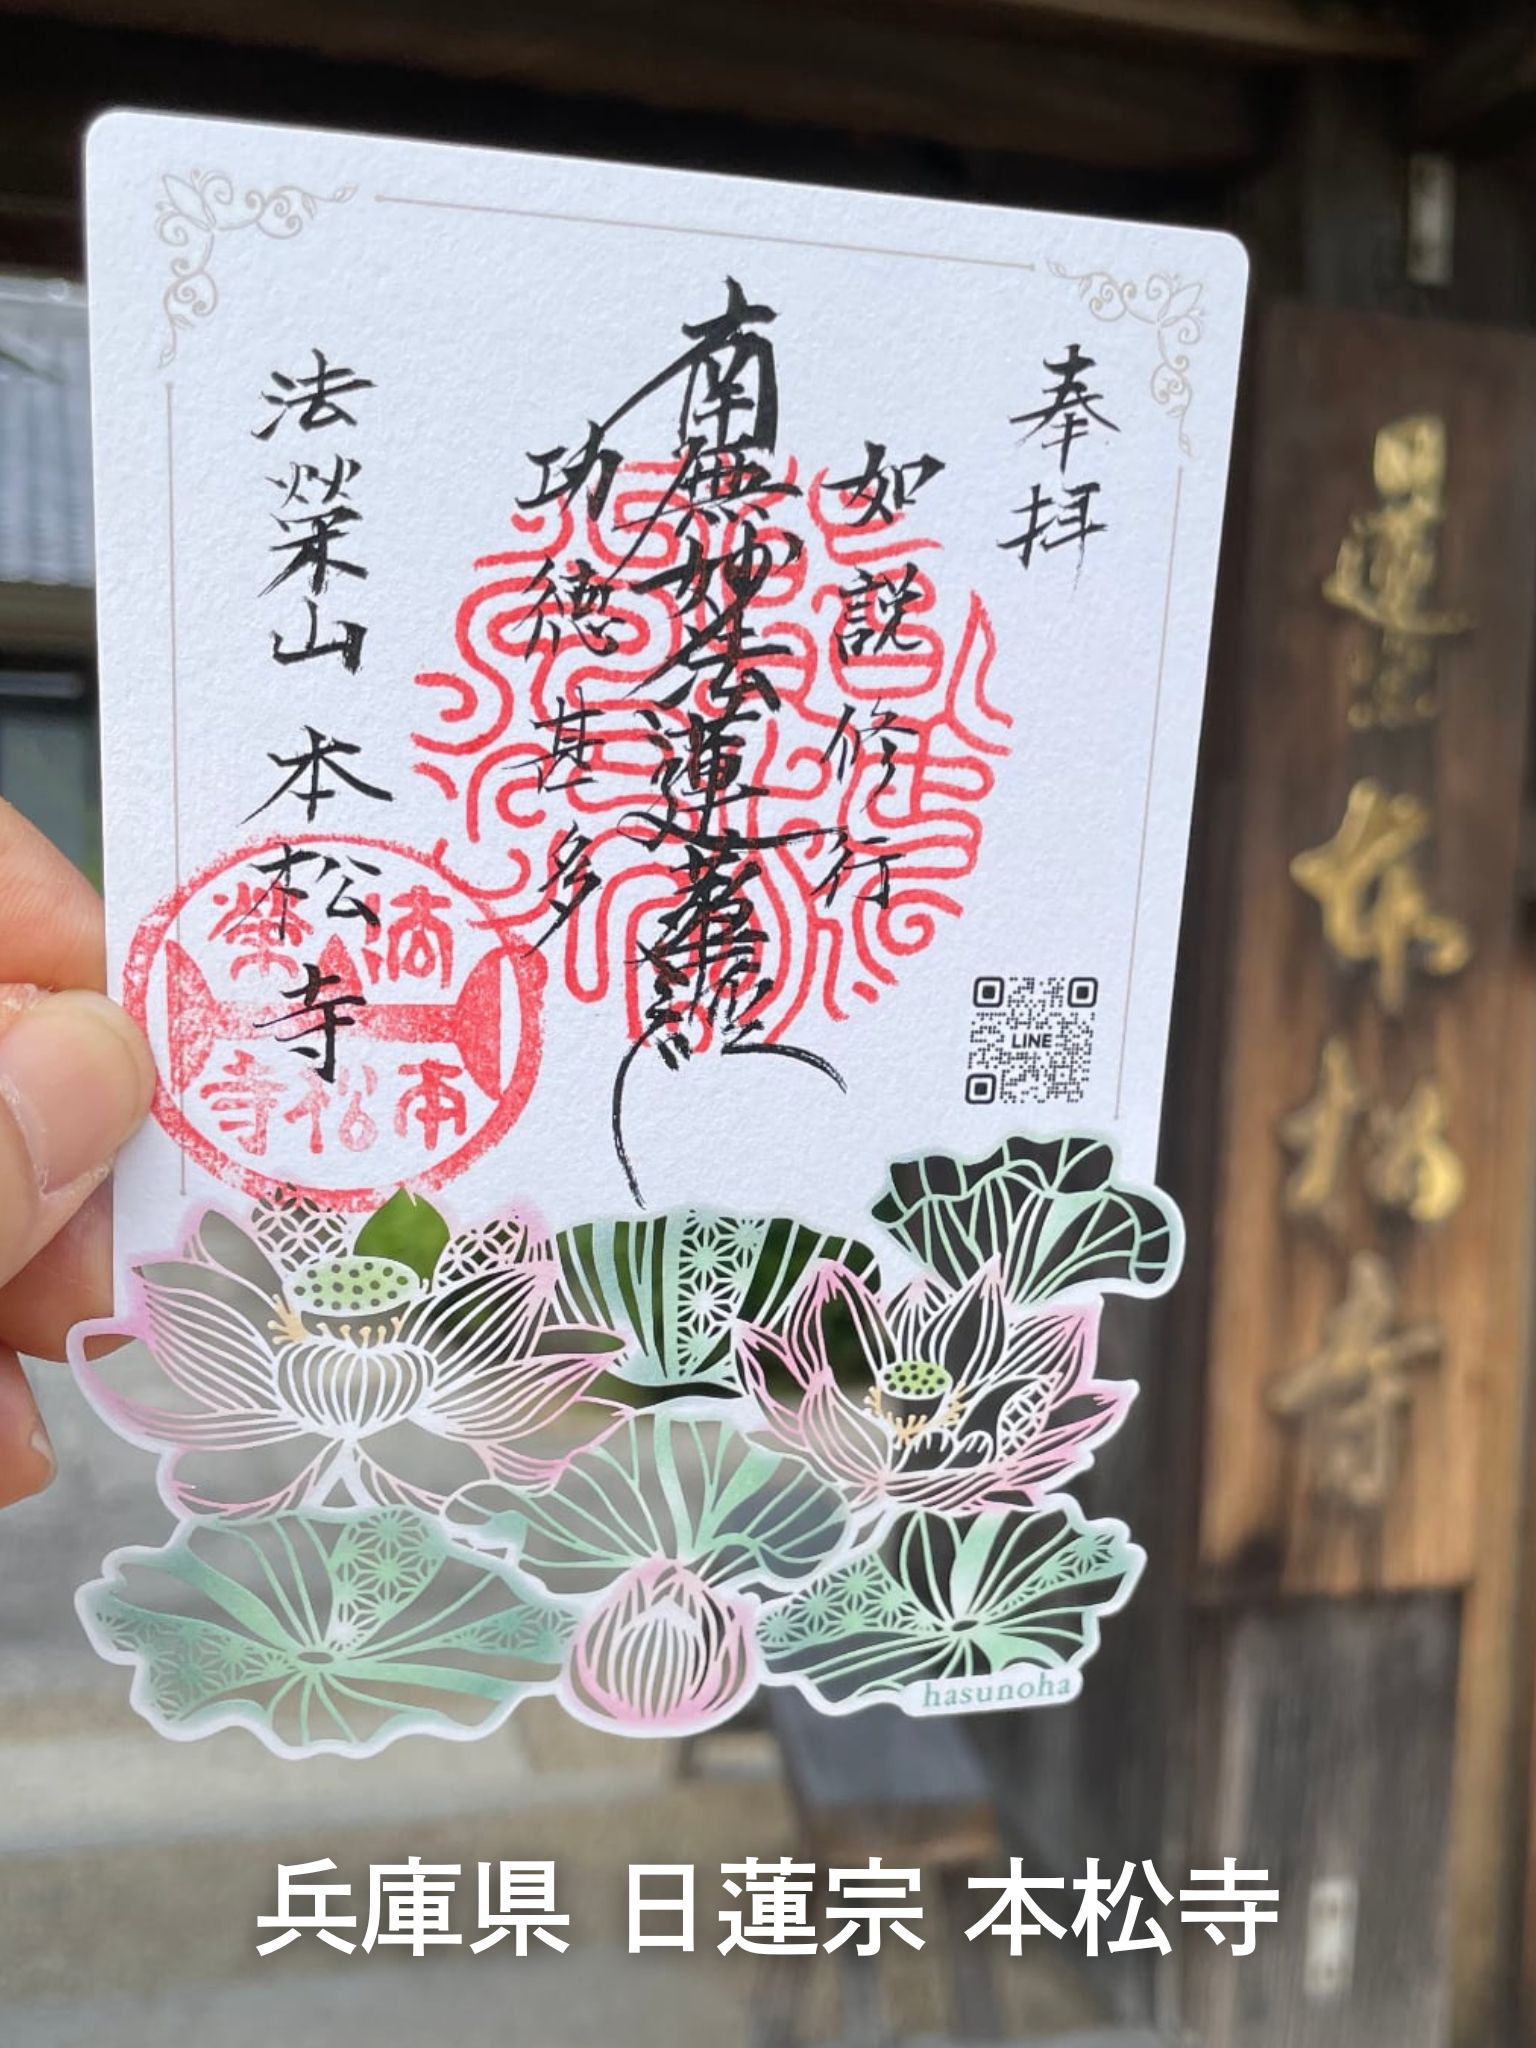 奉拝
如説修行
南無妙法蓮華経
功徳甚多
法榮山 本松寺
LINE
hasunoha
日蓮宗
本松寺
兵庫県 日蓮宗 本松寺